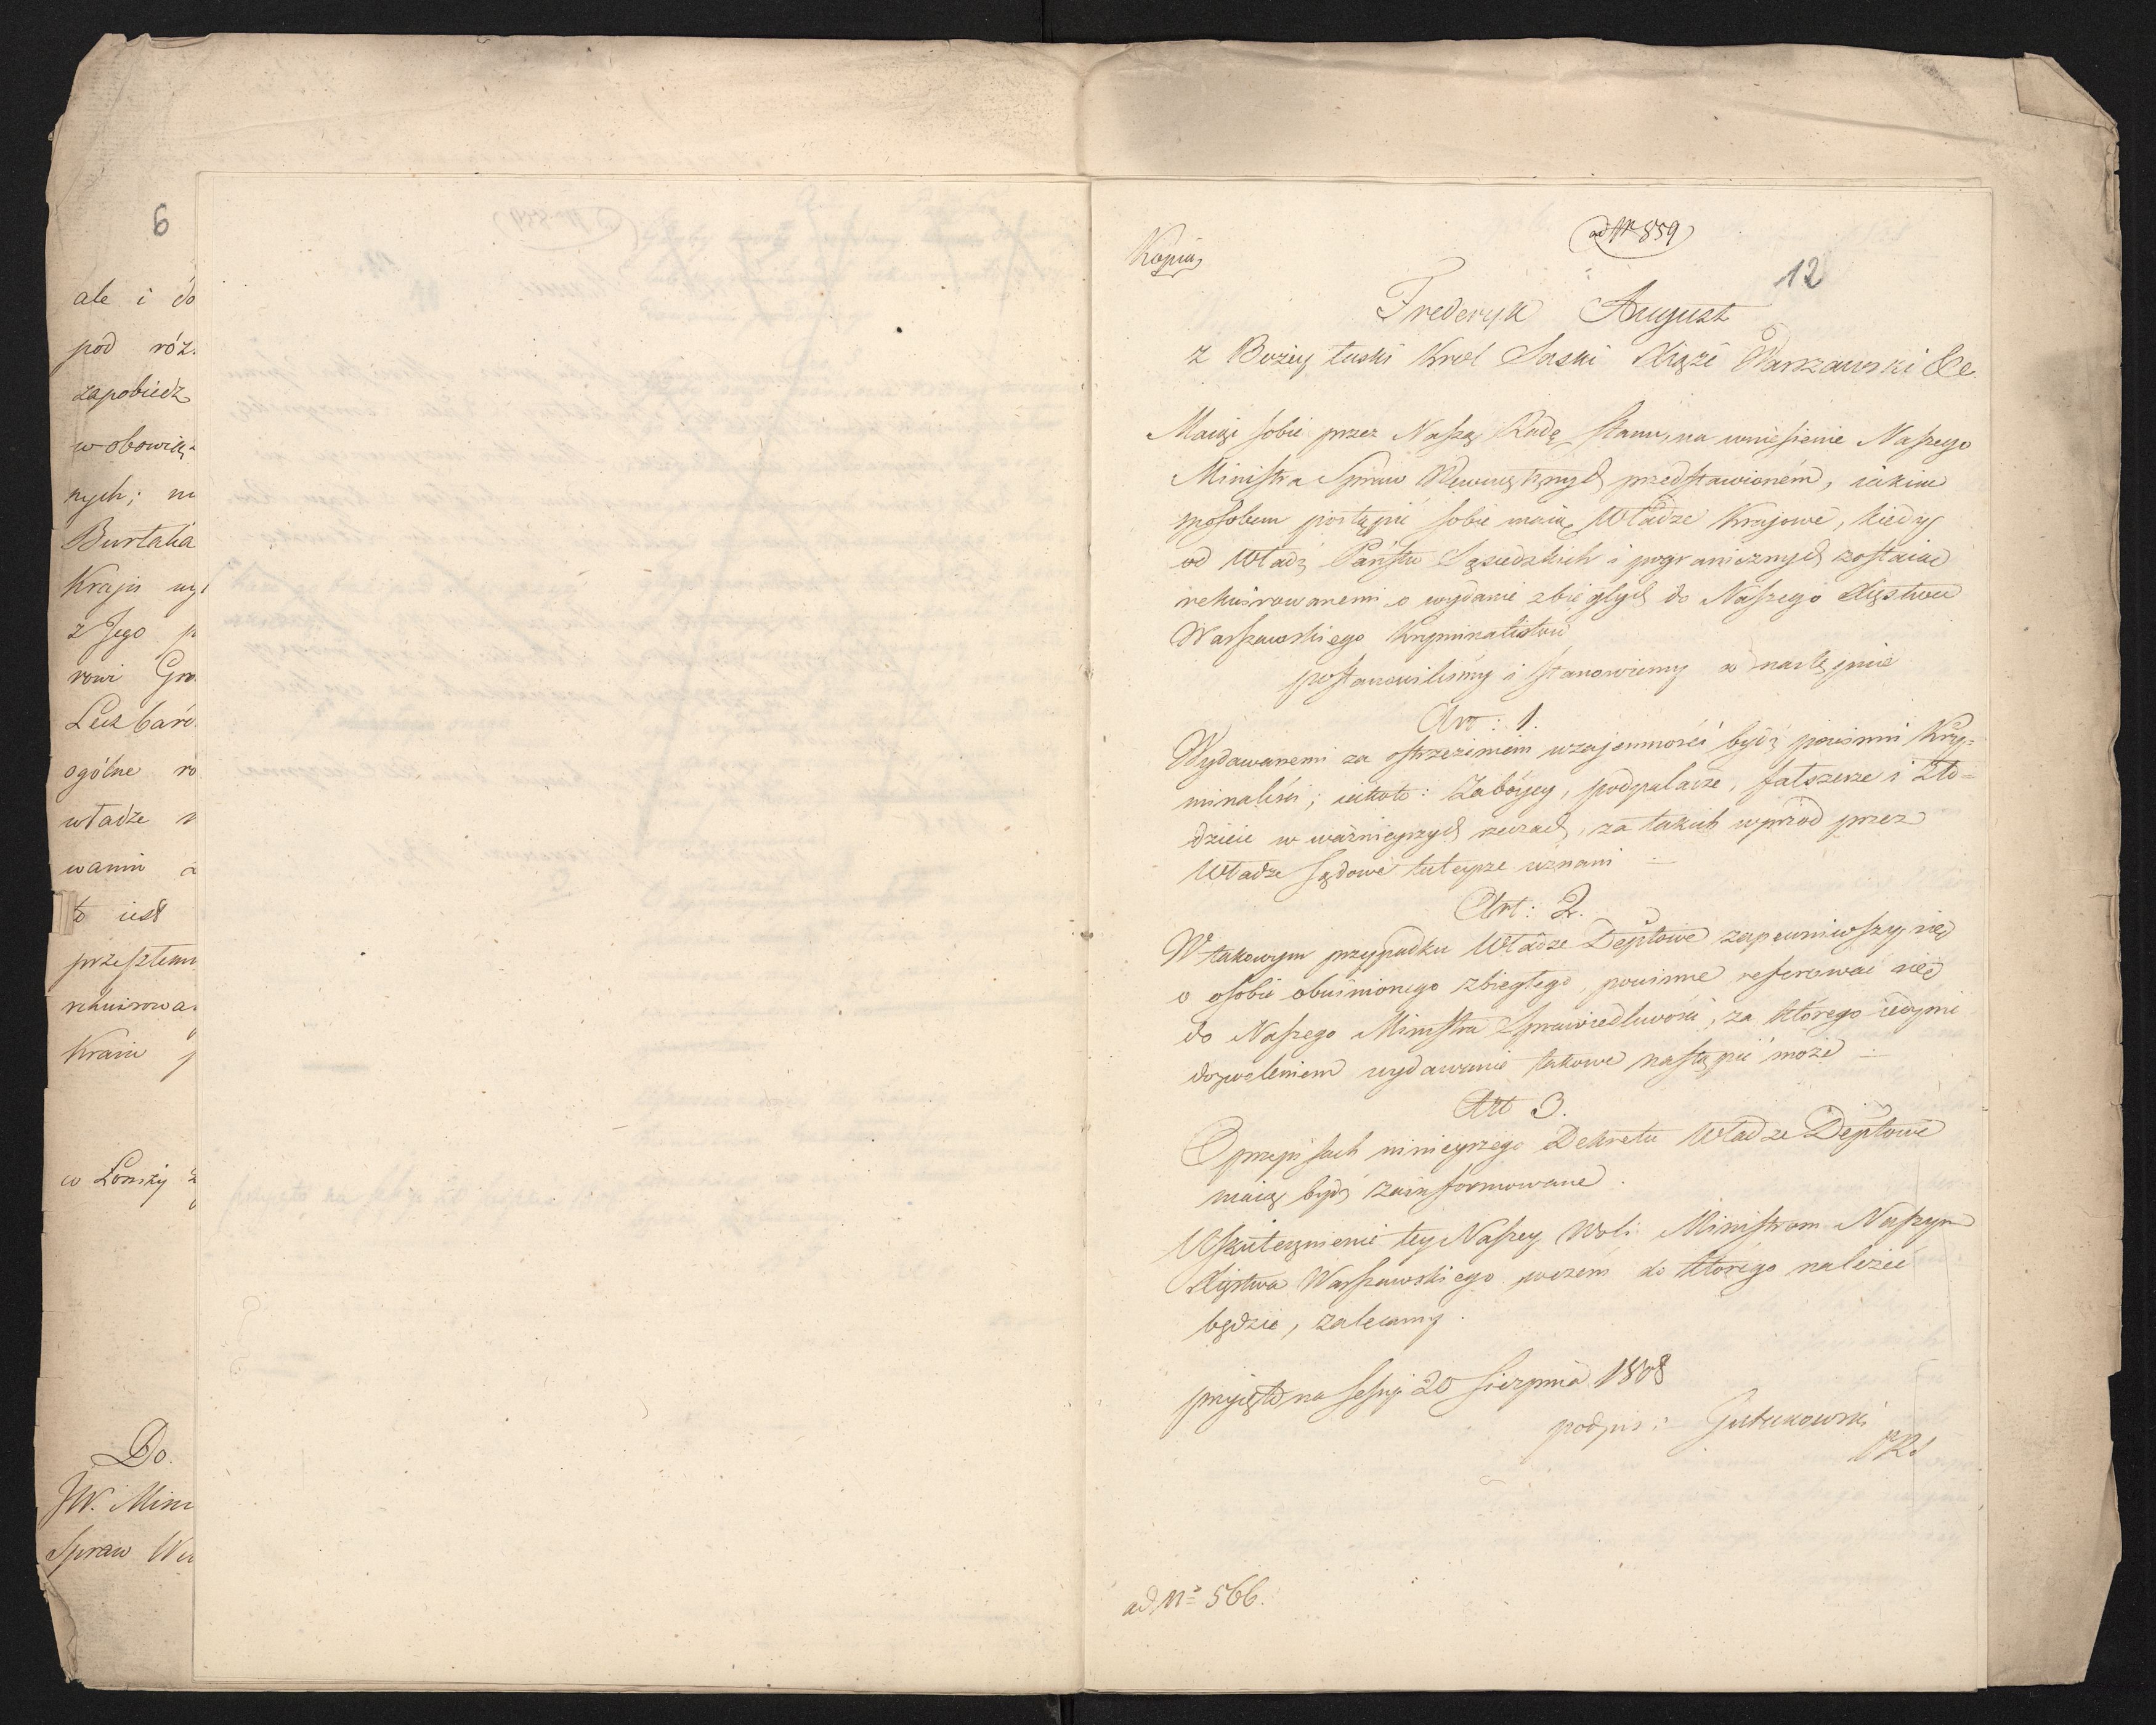 6
ale i do
pod róż
zapobiedz
w obowią-
nych; m
Burtatia
Kraju wy
z Jego p
rowi Gra
Lecz bar
ogólne ro
władze
wanni
to iest
przeszłem
rekwirowa
Kraiu p
w Łomży
Do
JW. Mini
Spraw We
ad Nr 859
Kopia
12
Frederyk August
z Bożey łaski Krol Saski Xiąże Warszawski &c
Maiąc sobie przez Naszą Radę Stanu, na wniesienie Naszego
Ministra Spraw Wewnętrznych przedstawionem, iakim
sposobem postąpić sobie maią Władze Krajowe, kiedy
od Władz Państw Sąsiedzkich i pogranicznych zostaiac
rekwirowanemi o wydanie zbiegłych do Naszego Xięstwa
Warszawskiego Kryminalistow
postanowiliśmy i stanowiemy co następuie
Art: 1.
Wydawanemi za ostrzeżeniem wzajemności bydź powinni Kry-
minaliści; iakoto: Zabóycy, podpalacze, fałszerze i Zło-
dzieie w ważnieyszych rzeczach, za takich wprzód przez
Władze Sądowe tuteysze uznani
Art: 2.
W takowym przypadku Władze Deptowe zapewniwszy się
o osobie obwinionego zbiegłego, powinne referować się
do Naszego Ministra Sprawiedliwości, za którego iedynie
dozwoleniem wydawanie takowe nastąpić może
Art 3.
O przepisach ninieyszego Dekretu Władze Deptowe
maią bydź zainformowane.
Uskutecznienie tey Naszey Woli Ministrom Naszym
Xięstwa Warszawskiego w czem do którego należeć
będzie, zalecamy.
przyięto na Sessyi 20 Sierpnia 1808
podpis: Gutakowski
PRS
ad No 566.